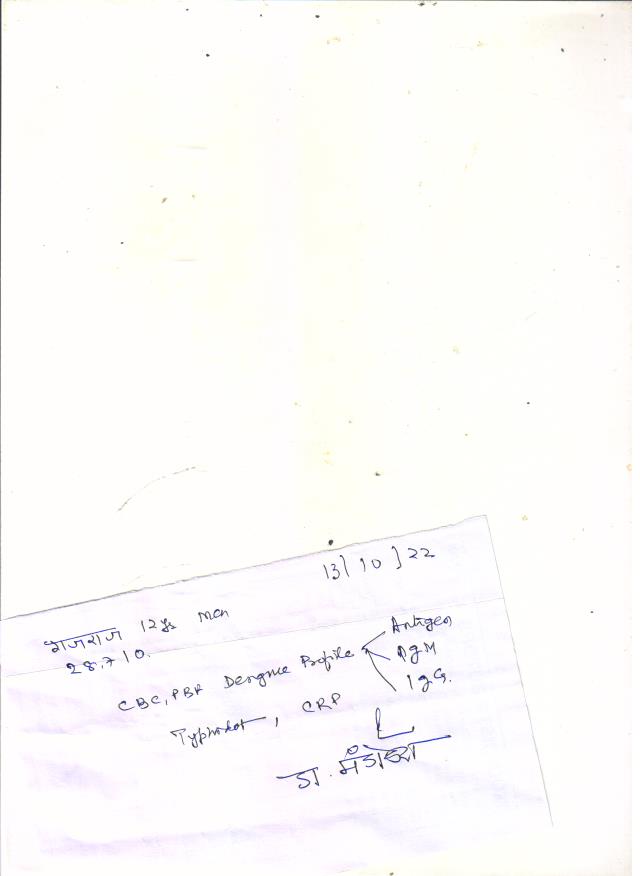 13/10/22
राजराज 12ys Mch
28.710.
CBC, PBF Dengue Profile Antigen
IgM
IgG.
Typhidot, CRP
डा.